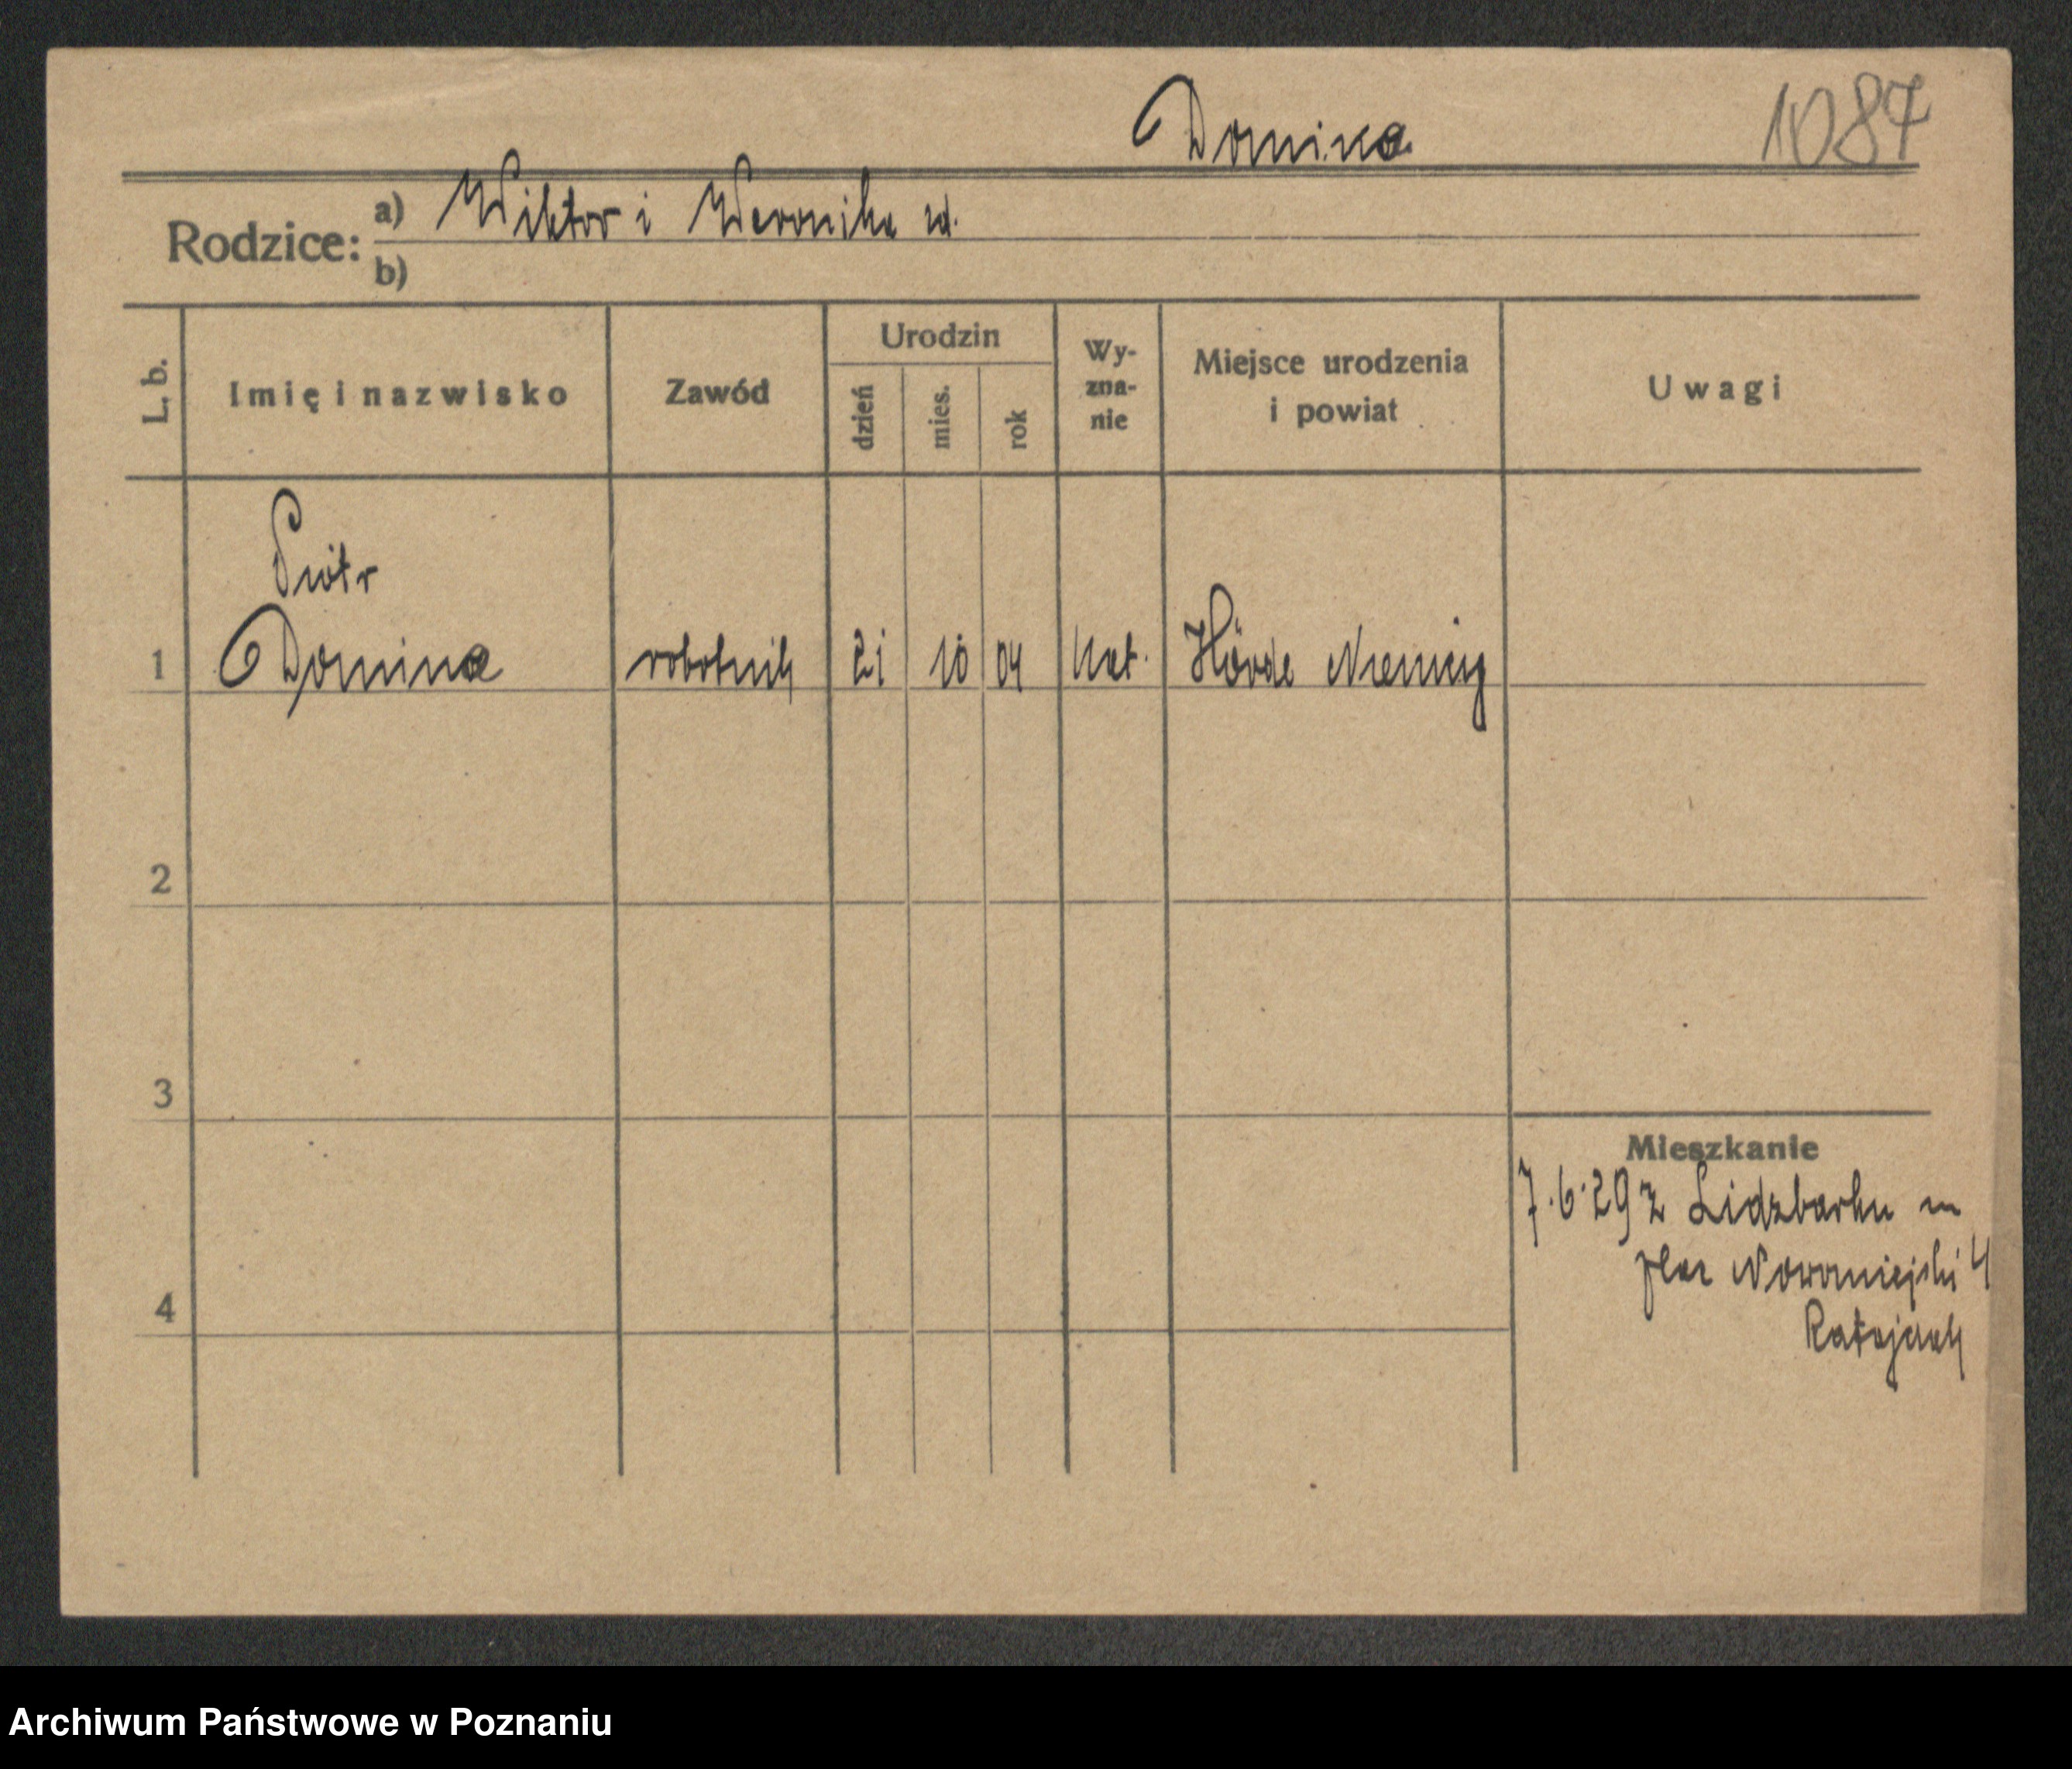 Domina
1087
Rodzice: a) Wiktor i Weronika
b)
L. b.
Imię i nazwisko
Zawód
Urodzin
dzień
mies.
rok
Wy-
zna-
nie
Miejsce urodzenia
i powiat
Uwagi
Piotr
1 Domina robotnik 21 10 04 kat. Hörde Niemcy
2
3
Mieszkanie
7.6.29 z Lidzbarku
plac Nowomiejski 4
4
Ratajczak
Archiwum Państwowe w Poznaniu